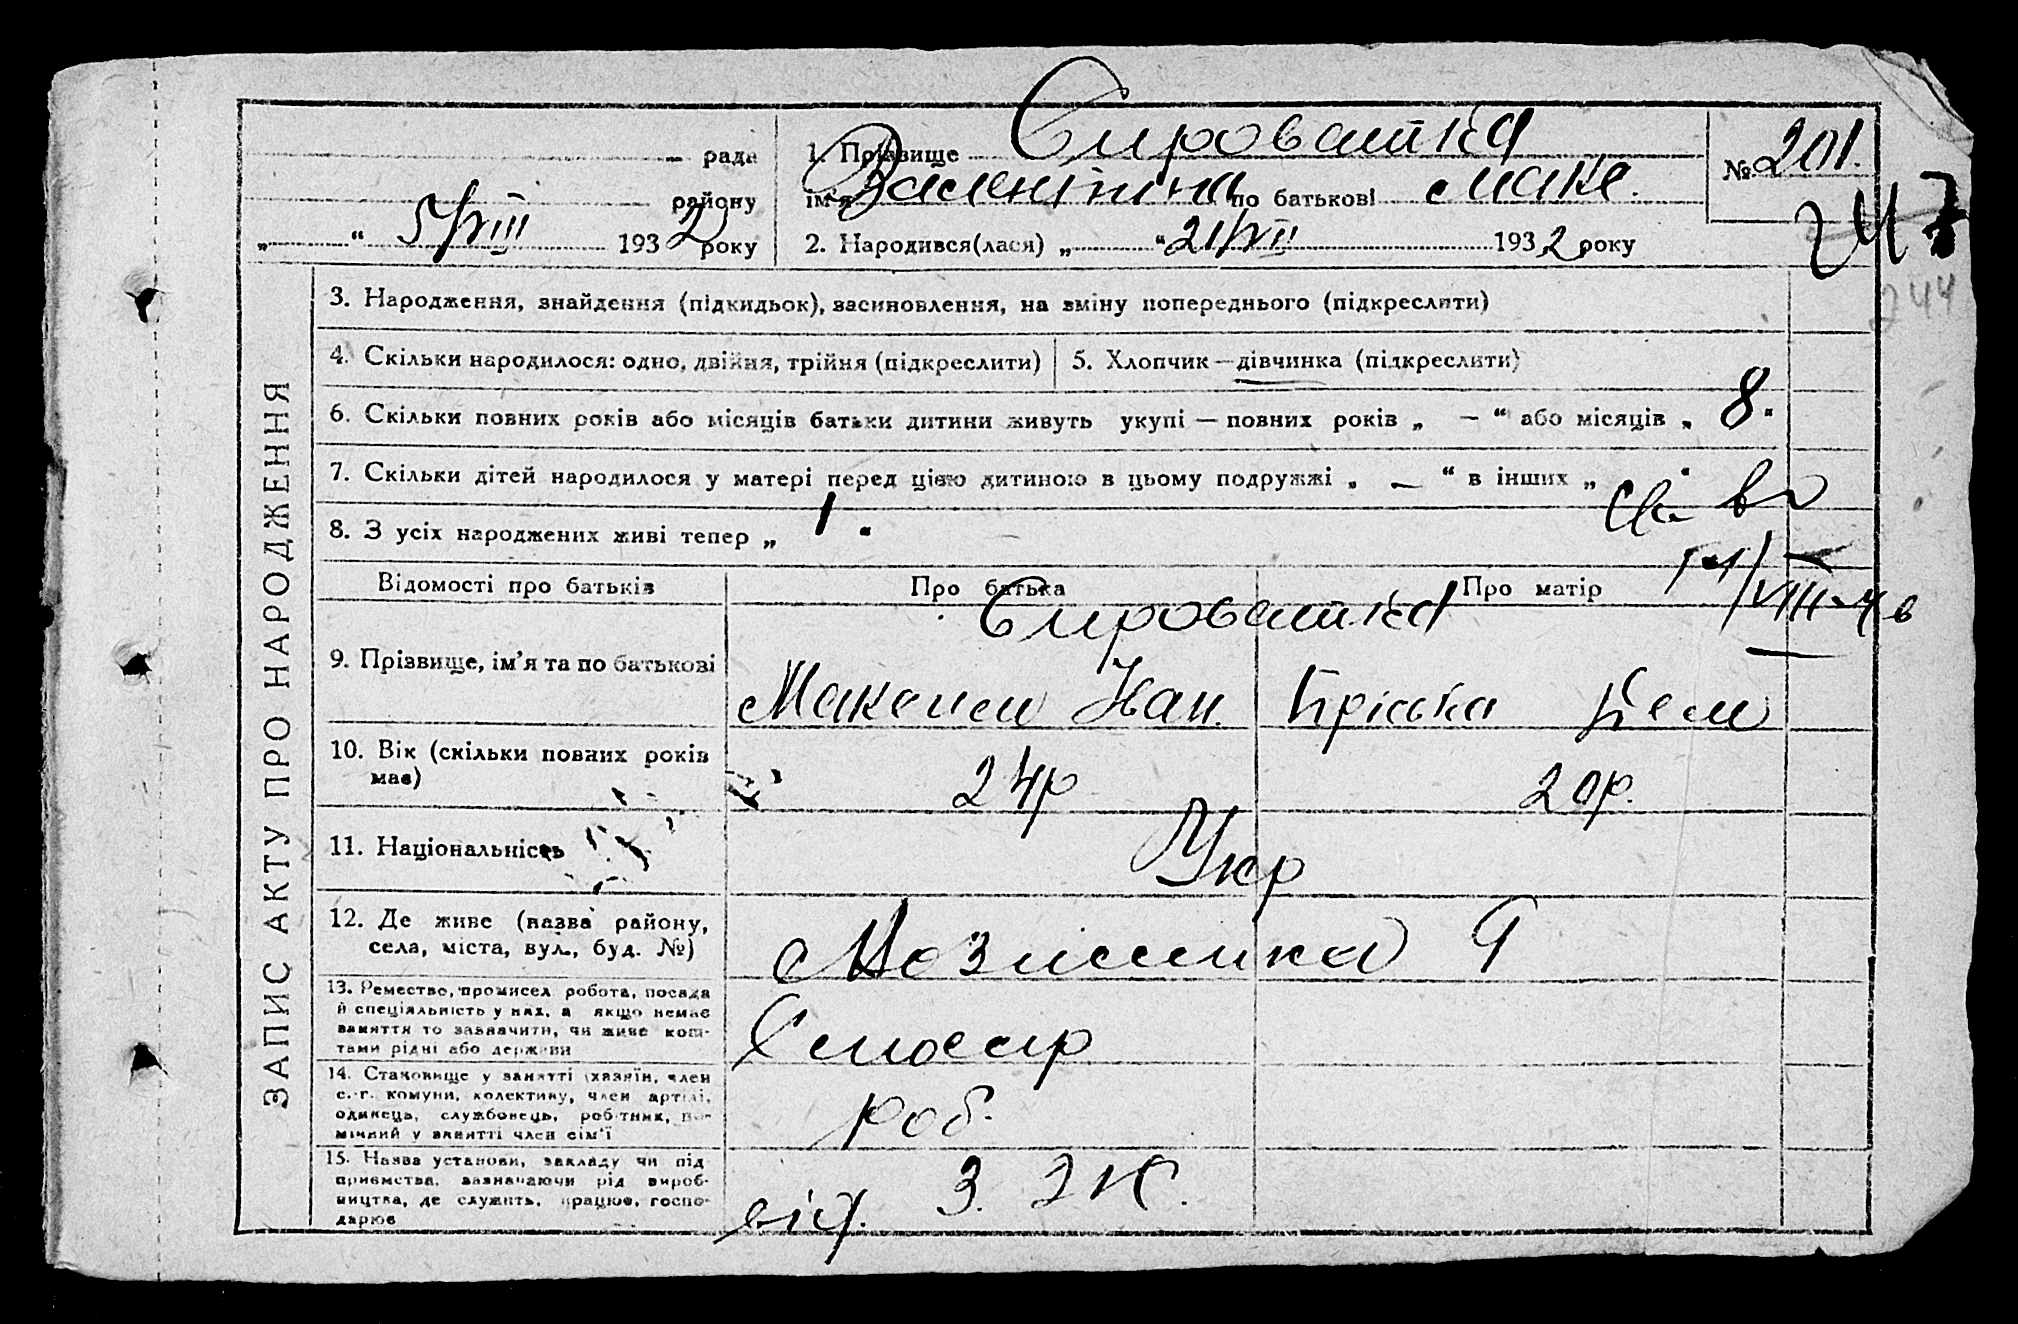 рада
1. Прізвище Сироватка
№ 201.
району
ім'я Валентина по батькові Макс.
247
„ “ 5/VIII 1932 року
2. Народився(лася) „ “ 21/VII 1932 року
244
ЗАПИС АКТУ ПРО НАРОДЖЕННЯ
3. Народження, знайдення (підкидьок), засиновлення, на зміну попереднього (підкреслити)
4. Скільки народилося: одно, двійня, трійня (підкреслити)
5. Хлопчик — дівчинка (підкреслити)
6. Скільки повних років або місяців батьки дитини живуть укупі — повних років „ — “ або місяців „ 8 “
7. Скільки дітей народилося у матері перед цією дитиною в цьому подружжі „ — “ в інших „ “
8. З усіх народжених живі тепер „ 1 “
Відомості про батьків
Про батька
Про матір
Сироватка
9. Прізвище, ім'я та по батькові
Максим Іван.
Пріська Дем
10. Вік (скільки повних років
має)
24р
20р.
11. Національність
Укр
12. Де живе (назва району,
села, міста, вул., буд. №)
9
13. Ремество, промисел робота, посада
й спеціяльність у них, а якщо немає
заняття то зазначити, чи живе кош-
тами рідні або держави
Слюсар
14. Становище у занятті (хазяїн, член
с.-г. комуни, колективу, член артілі,
одинець, службовець, робітник, по-
мічний у занятті член сім'ї
роб.
15. Назва установи, закладу чи під
приємства, зазначаючи рід вироб-
ництва, де служить, працює, госпо-
дарює